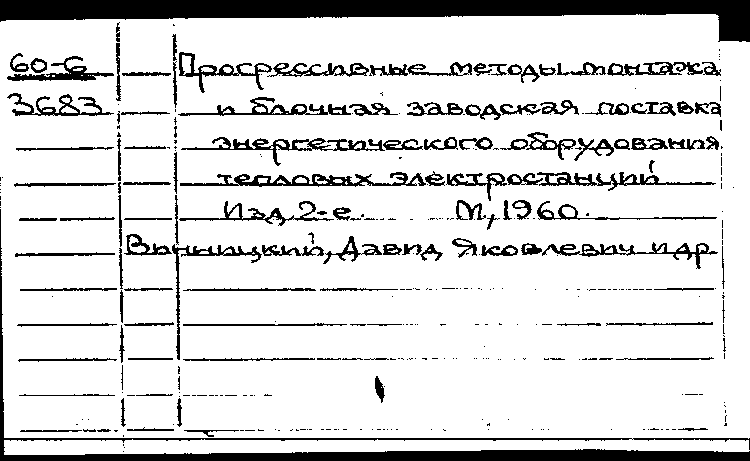 60-6 Прогрессивные методы монтажа
3683 и блочная заводская поставка
энергетического оборудования
тепловых электростанций
Изд. 2-е. М., 1960.
Винницкий, Давид Яковлевич и др.